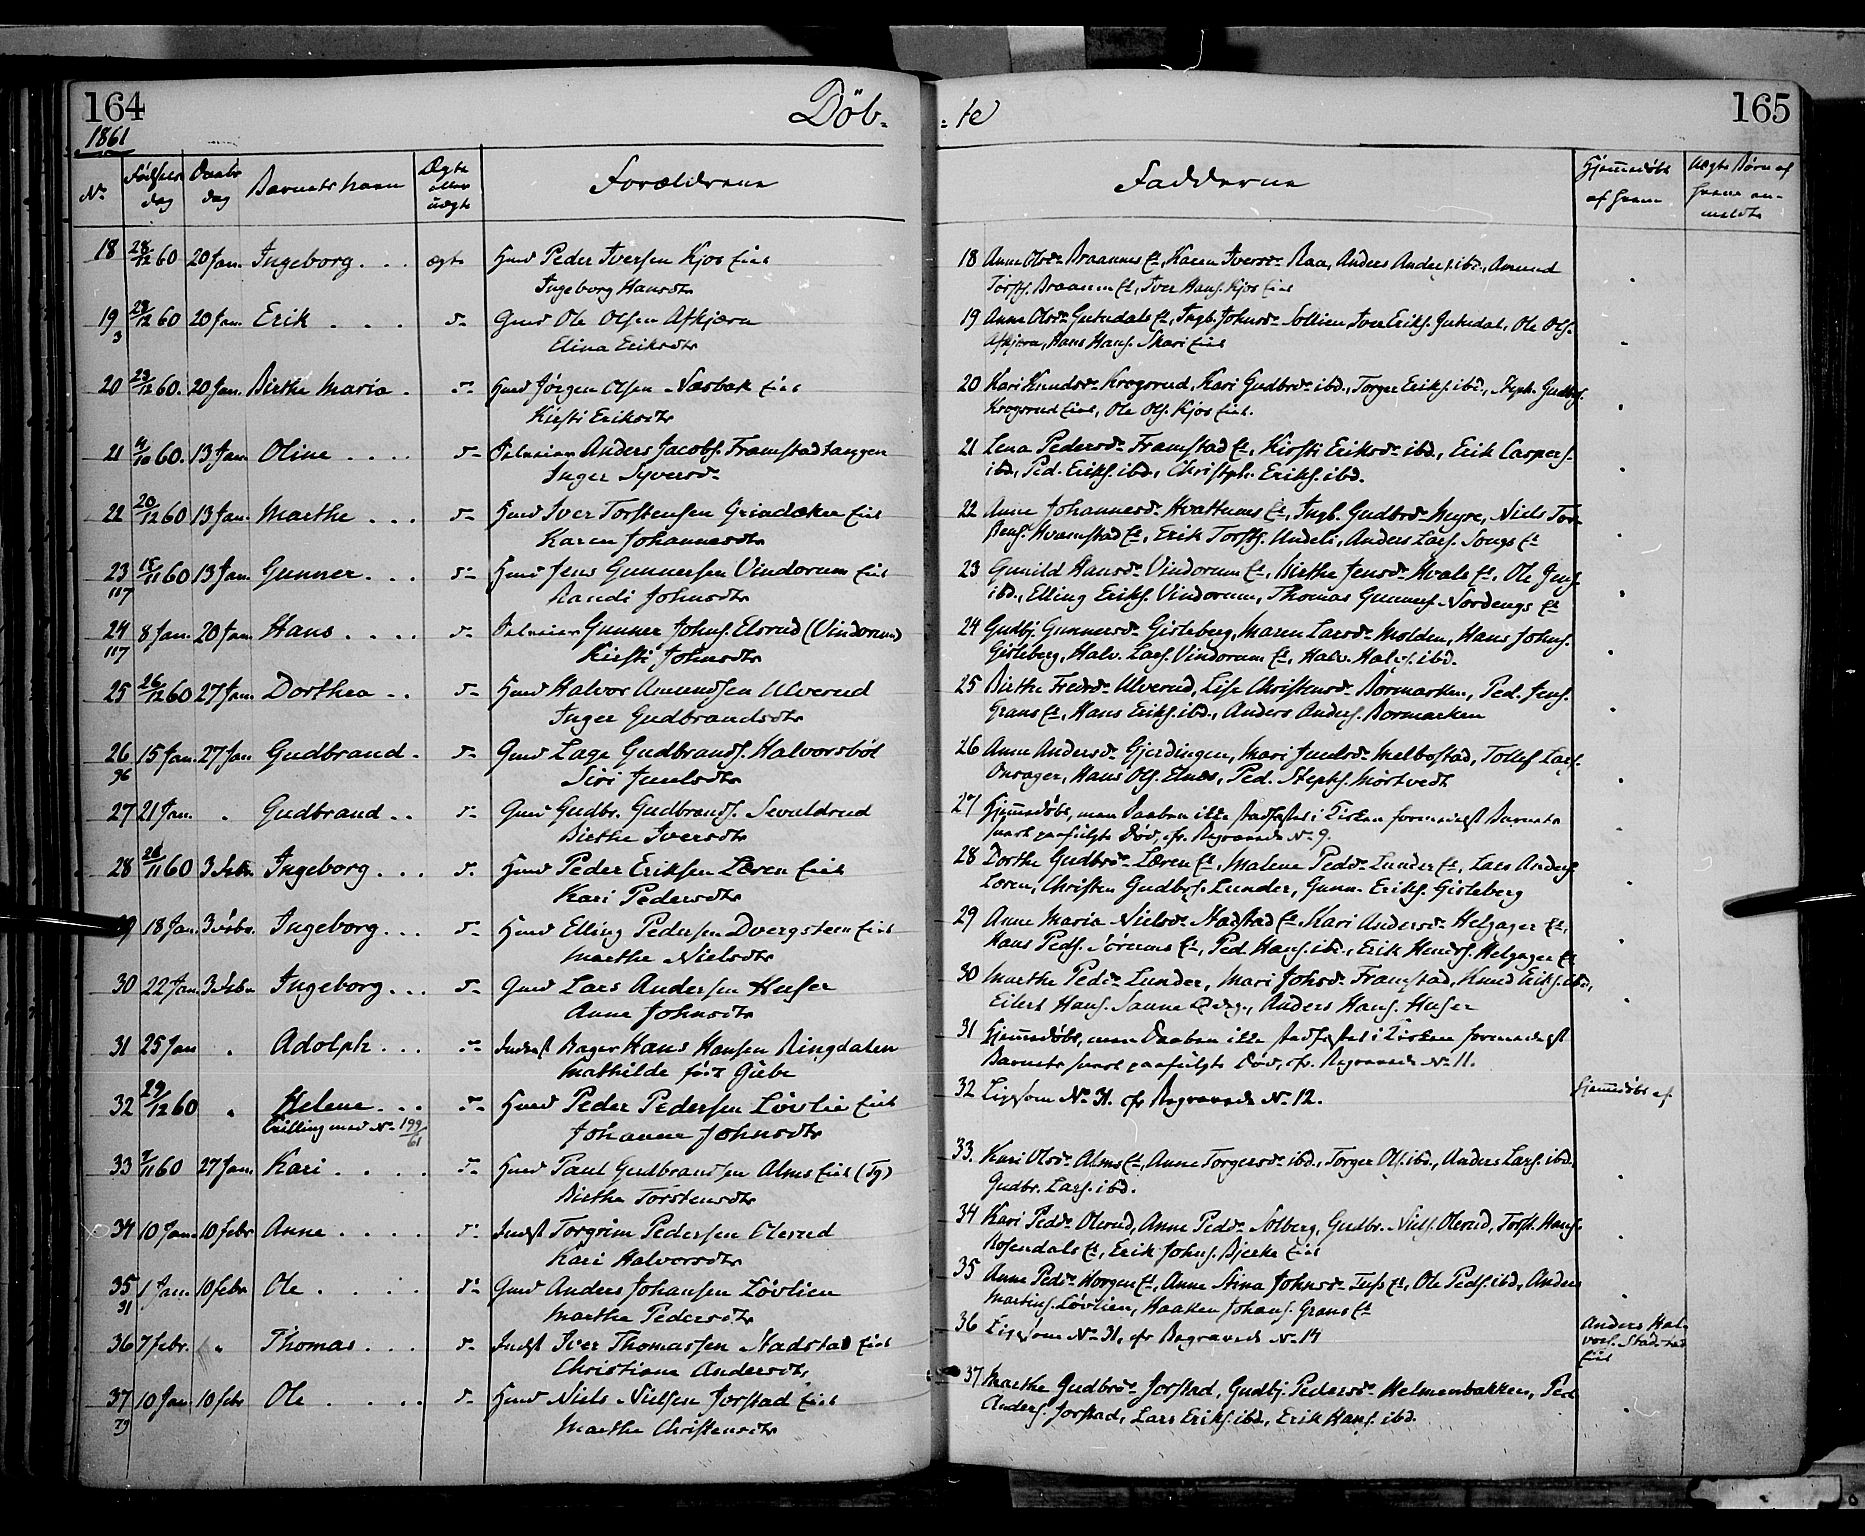 164
Döb-
1861
No
Fødsels dag
Daabs dag
Barnets Navn
Ægte eller uægte
Forældrene
18 28/12 60 20 Jan. Ingeborg . . . ægte Husmd Peder Iversen Kjos Eie
Ingeborg Hansdtr
19 28/12 60 20 Jan. Erik . . . . Gmd Ole Olsen Askjærn
3 Elina Eriksdtr
20 23/12 60. 20 Jan. Birthe Maria . Husmd Jørgen Olsen Næsbak Eie
Kirsti Eriksdtr
21 4/10 60. 13 Jan. Oline . . . . Anders Jacobs. Framstadtangen
Inger Syversd.
22 20/12 60 13 Jan. Marthe . . . Husmd Iver Torstensen Grindaker Eie
Karen Johannesdtr
23 15/11 60 13 Jan. Gunner . . . Husmd Jens Gunnersen Vindorum Eie
117 Randi Johnsdtr
24 8 Jan. 20 Jan Hans . . . . Gunner Johns. Elsrud (Vindorum)
117 Kirsti Johnsdtr
25 26/12 60 27 Jan. Dorthea . . Husmd Halvor Amundsen Ulverud
Inger Gudbrandsdtr
26 15 Jan. 27 Jan Gudbrand . Gmd Lage Gudbrands. Halvorsböl
96 Siri Juulsdtr
27 21 Jan. " Gudbrand . . Gmd Gudbr. Gudbrands. Sevaldrud
Birthe Iversdtr
28 26/11 60 3 Febr. Ingeborg . . . Husmd Peder Eriksen Læren Eie
Kari Pedersdtr
29 18 Jan. 3 Febr. Ingeborg . . . Husmd Elling Pedersen Dvergsteen Eie
Marthe Nielsdtr
30 22 Jan. 3 Febr Ingeborg . . . Gmd Lars Andersen Huser
Anne Johnsdtr
31 25 Jan " Adolph . . . Inderst Bager Hans Hansen Ringdalen
Mathilde född Giebe
32 29/12 60 " Helene . . . Husmd Peder Pedersen Lövlie Eie
Tvilling med No 199/61 Johanne Johnsdtr
33 7/11 60 27 Jan. Kari . . . . Husmd Paul Gudbrandsen Alms Eie (Tg)
Birthe Torstensdtr
34 10 Jan. 10 Febr Anne . . . . Inderst Torgrim Pedersen Olerud
Kari Halvorsdtr
35 1 Jan. 10 Febr Ole . . . . Gmd Anders Johansen Lövlien
31 Marthe Pedersdtr
36 7 Febr. " Thomas . . . Inderst Iver Thomassen Stadstad Eie
Christiane Andersdtr
37 10 Jan 10 Febr Ole . . . . Husmd Niels Nielsen Jorstad Eie
79 Marthe Christensdtr
:te
165
Fadderne
Hjemmedøbt af hvem
Uægte Børn af hvem anmeldt
18 Anne Olsd. Braannes E., Karen Iversd. Raa, Anders Anders. ibd., Amund
Torsts. Braannes E., Iver Hans. Kjos Eie
19 Anne Olsd. Gutudals E., Ingb. Johnsd. Sollien, Iver Eriks. Gutudal, Ole Ols.
Askjærn, Hans Hans. Skari Eie
20 Kari Knudsd. Krogsrud, Kari Gudbrd. ibd., Torger Eriks. ibd., Steph. Gudbrs.
Krogsrud Eie, Ole Ols. Kjos Eie.
21 Lena Pedersd. Framstad E., Kirsti Eriksd. ibd., Erik Caspers.
ibd., Ped. Eriks. ibd., Christph. Eriks. ibd.
22 Anne Johannesd. Hvattums E., Ingb. Gudbrd. Myre, Niels Tor-
stens. Kvamstad E., Erik Torsts. Andeli, Anders Lars. Songs E.
23 Gunild Hansd. Vindorum E., Birthe Jensd. Hvals E., Ole Jens.
ibd., Elling Eriks. Vindorum, Thomas Gunners. Nordengs E.
24 Gudbj. Gunnersd. Gisleberg, Maren Larsd. Molden, Hans Johns.
Gisleberg, Halv. Lars. Vindorum E., Halv. Halvs. ibd.
25 Birthe Fredrd. Ulverud, Lise Christensd. Bormarken, Ped. Jens.
Grans E., Hans Eriks. ibd., Anders Anders. Bormarken
26 Anne Andersd. Gjerdingen, Mari Juulsd. Melbostad, Tollef Lars.
Onsager, Hans Ols. Elnæs, Ped. Stephs. Mörtvedt
27 Hjemmedøbt, men Daaben ikke stadfæstet i Kirken formedelst Barnets
snart paafulgte Död, cfr. Begravede No 9.
28 Dorthe Gudbrd. Læren E., Malene Pedd. Lunder E., Lars Anders.
Læren, Christen Gudbrs. Lunder, Gunn. Eriks. Gisleberg
29 Anne Maria Nielsd. Stadstad E., Kari Andersd. Helgager E.,
Hans Peds. Sörums E., Ped. Hans. ibd., Erik Henrs. Helgager E.
30 Marthe Pedd. Lunder, Mari Johnsd. Framstad, Knud Eriks. ibd.,
Eilert Hans. Sanne Eie, Anders Hans. Huser
31 Hjemmedøbt, men Daaben ikke stadfæstet i Kirken formedelst
Barnets snart paafulgte Död, cfr. Begravede No 11.
32 Ligesom No 31. cfr Begravede No 12. Hjemmedøbt af
33. Kari Olsd. Alms E., Anne Torgersd. ibd., Torger Ols. ibd., Anders Lars. ibd.,
Gudbr. Lars. ibd.
34 Kari Pedd. Olerud, Anne Pedd. Solberg, Gudbr. Niels. Olerud, Torst. Hans.
Rosendals E., Erik Johns. Bjerke Eie
35 Anne Pedd. Horgen E., Anne Stina Johnsd. Tuss E., Ole Peds. ibd., Anders
Martins. Lövlien, Haaken Johans. Grans E.
36 Ligesom No 31, cfr Begravede No 14 Anders Hal-
vors. Stadstad
Eie
37 Marthe Gudbrd. Jorstad, Gudbj. Pedersd. Helmenbakken, Ped.
Anders. Jorstad, Lars Eriks. ibd., Erik Hans. ibd.